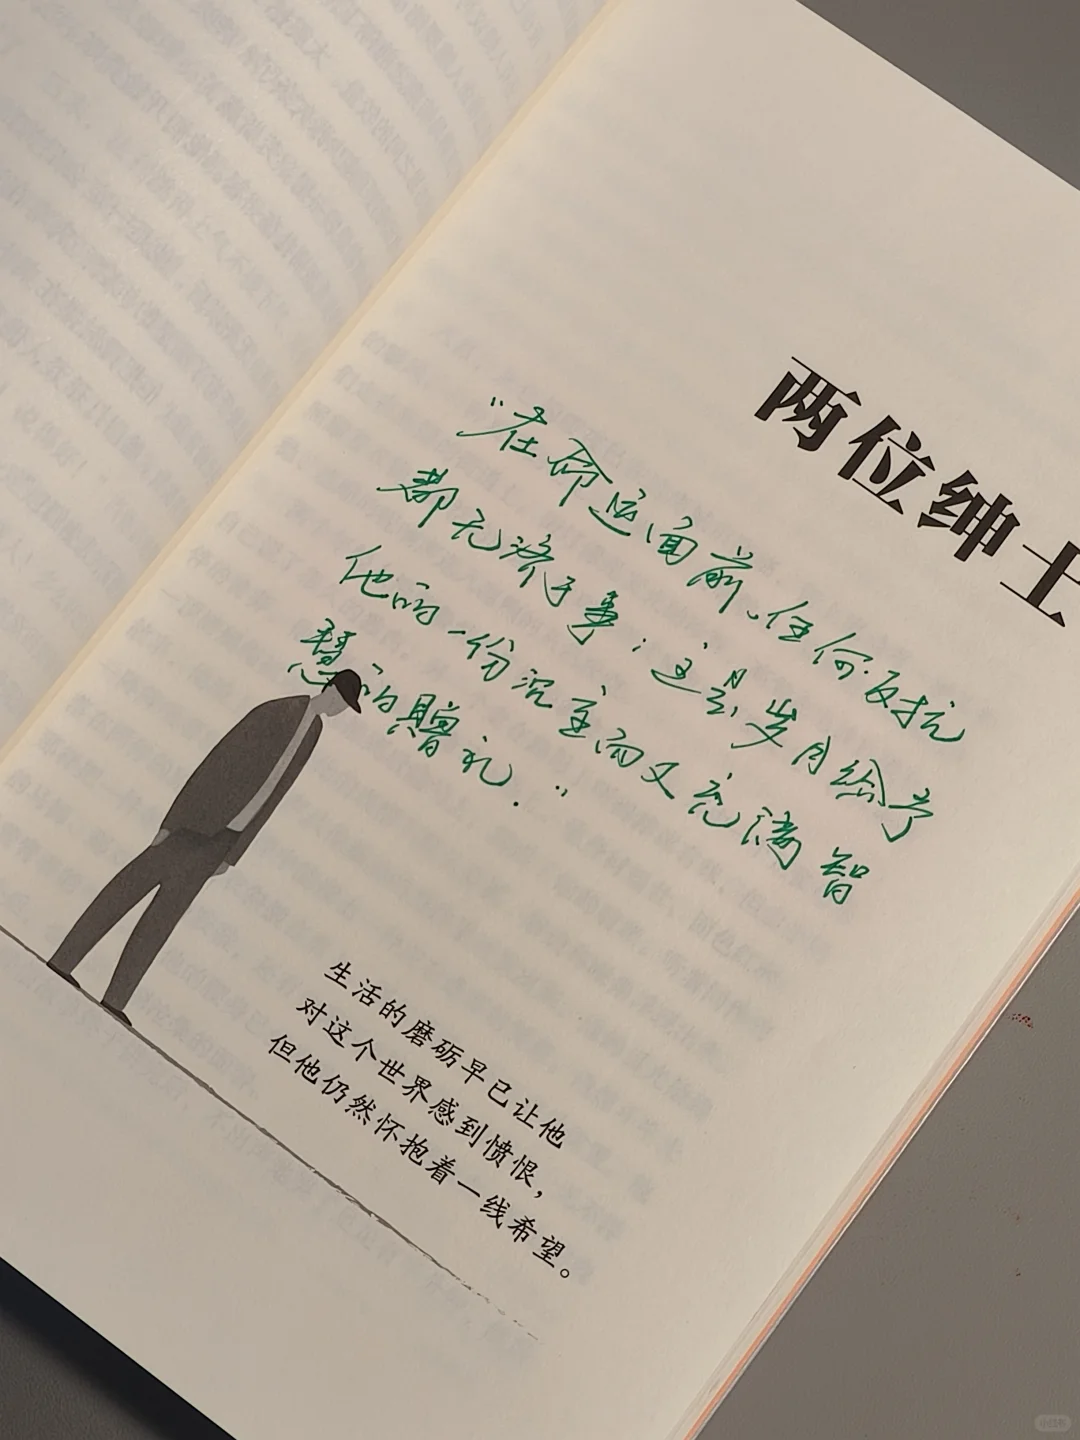 两位绅士
“在命运面前、任何反抗
都无济于事；这是岁月给予
他的一份沉重而又充满智
慧的赠礼.”
生活的磨砺早已让他
对这个世界感到愤恨，
但他仍然怀抱着一线希望。
小红书